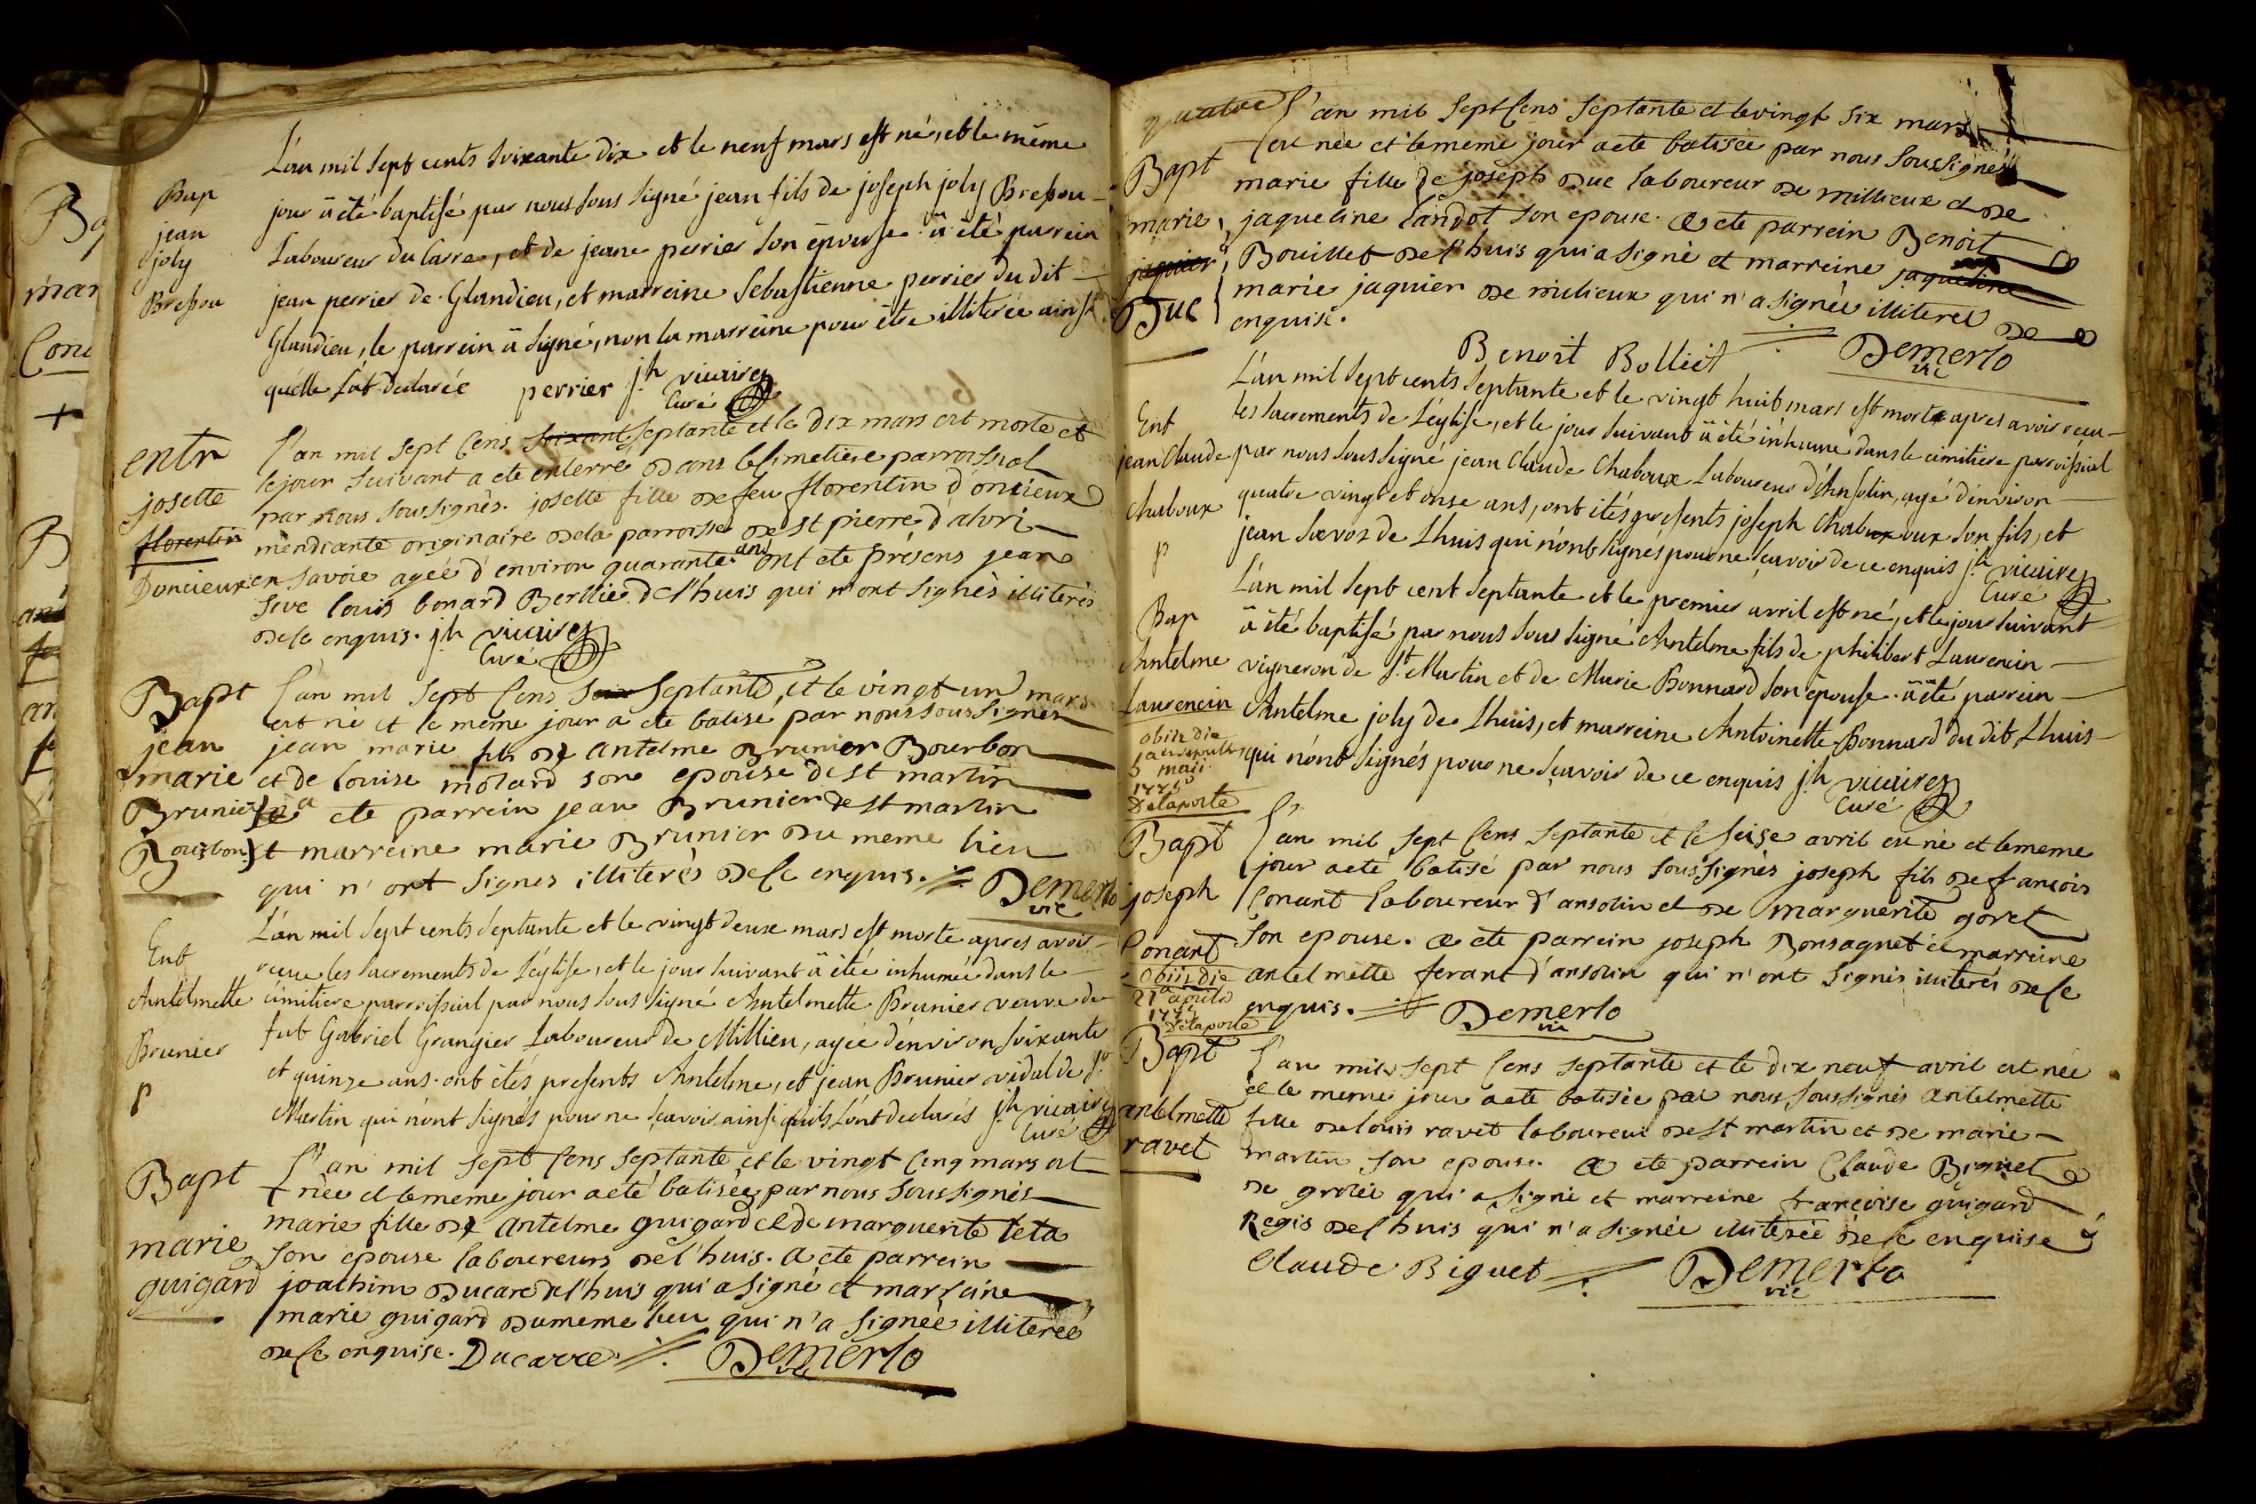 L'an mil sept cents soixante dix et le neuf mars est né, et le même
Bap
jour ä été baptisé par nous sous signé jean fils de joseph joly Bressou
jean
joly
Laboureur du larre, et de jeane perrier son épouse. ä été parrein
Bressou
jean perrier de Glandieu, et marreine Sebastienne perrier du dit
Glandieu, le parrein ä signé, non la marreine pour être illiterée ainsi
qu'elle l'at declarée perrier jh vicaire
Curé
entr
L'an mil sept Cens septante et le dix mars est morte et
le jour suivant a ete enterré dans le Cimetiere parroissial
josette
par nous soussignés. josette fille de feu florentin d'oncieux
florentin
mendiante originaire de la parroisse de st pierre d'
Doncieux
en savoie agée d'environ quarante ans ont ete présens jean
seve louis bonard Berllie de l'huis qui n'ont signés illiterés
de ce enquis. jh vicaire
Curé
Bapt
L'an mil sept Cens septante, et le vingt un mars
est né et le même jour a ete batisé par nous soussignés
jean
jean marie fils de antelme Brunier Bourbon
marie
et de louise molard son epouse de st martin
Brunier
a ete parrein jean Brunier de st martin
Bourbon
et marreine marie Brunier du meme lieu
qui n'ont signés illiterés de ce enquis. Demerlo
vic
L'an mil sept cents septante et le vingt deux mars est morte apres avoir
Ent
reçue les sacrements de l'église, et le jour suivant ä été inhumée dans le
Antelmette
cimitiere parroissial par nous sous signé Antelmette Brunier veuve de
Brunier
fut Gabriel Grangier Laboureur de Millieu, agée d'environ soixante
p
et quinze ans. ont étés presents Antelme, et jean Brunier vidal de st
Martin qui n'ont signés pour ne sçavoir ainsi qu'ils l'ont declarés jh vicaire
Curé
Bapt
L'an mil sept Cens septante et le vingt Cenq mars est
née et le meme jour a eté batisée par nous soussignés
marie
marie fille de antelme guigard et de marguerite teta
son epouse laboureurs de l'huis. a ete parrein
guigard
joachim Ducare de l'huis qui a signé et marreine
marie guigard du meme lieu qui n'a signée illiterée
de ce enquise. Ducarre Demerlo
vic
quatre
L'an mil sept Cens septante et le vingt six mars
est née et le meme jour a ete batisée par nous soussignés
Bapt
marie fille de joseph Duc laboureur de millieux et de
marie
jaqueline landot son epouse. a ete parrein Benoit
jaquier
Bouillet de l'huis qui a signé et marreine jaqueline
Duc
marie jaquier de milieux qui n'a signée illiteree de
enquise.
Benoit Bolliet Demerlo
vic
L'an mil sept cents septante et le vingt huit mars est mort apres avoir reçu
Ent
les sacrements de l'église, et le jour suivant ä été inhumé dans le cimitiere parroissial
jean Claude
par nous sous signé jean Claude Chaboux Laboureur d'Ansolin, agé d'environ
Chaboux
quatre vingt et onse ans, ont étés presents joseph Chaboux son fils, et
p
jean saevoz de Lhuis qui n'ont signés pour ne sçavoir de ce enquis jh vicaire
Curé
L'an mil sept cent septante et le premier avril est né, et le jour suivant
Bap
ä été baptisé par nous sous signé Antelme fils de philibert Laurencin
Antelme
vigneron de st. Martin et de Marie Bonnard son épouse. ä été parrein
Laurencin
Antelme joly de Lhuis, et marreine Antoinette Bonnard du dit Lhuis
obiit die
5 maii
1775
Delaporte
qui n'ont signés pour ne sçavoir de ce enquis jh vicaire
Curé
Bapt
L'an mil sept Cens septante et le seise avril est né et le meme
jour a eté batisé par nous soussignés joseph fils de francois
joseph
Conant laboureur d'ansolin et de marguerite goret
Conant
son epouse. a ete parrein joseph Bonsagnet et marreine
obiit die
21 aprilis
Delaporte
antelmette ferant d'ansolin qui n'ont signés illiterés de ce
enquis. Demerlo
vic
Bapt
L'an mil sept Cens septante et le dix neuf avril est née
et le meme jour a eté batisée par nous soussignés antelmette
antelmette
fille de louis ravet laboureur de st martin et de marie
ravet
martin son epouse. a ete parrein Claude Biguet
de grolée qui a signé et marreine francoise guigard
Regis de l'huis qui n'a signée illiterée de ce enquise
Claude Biguet Demerlo
vic